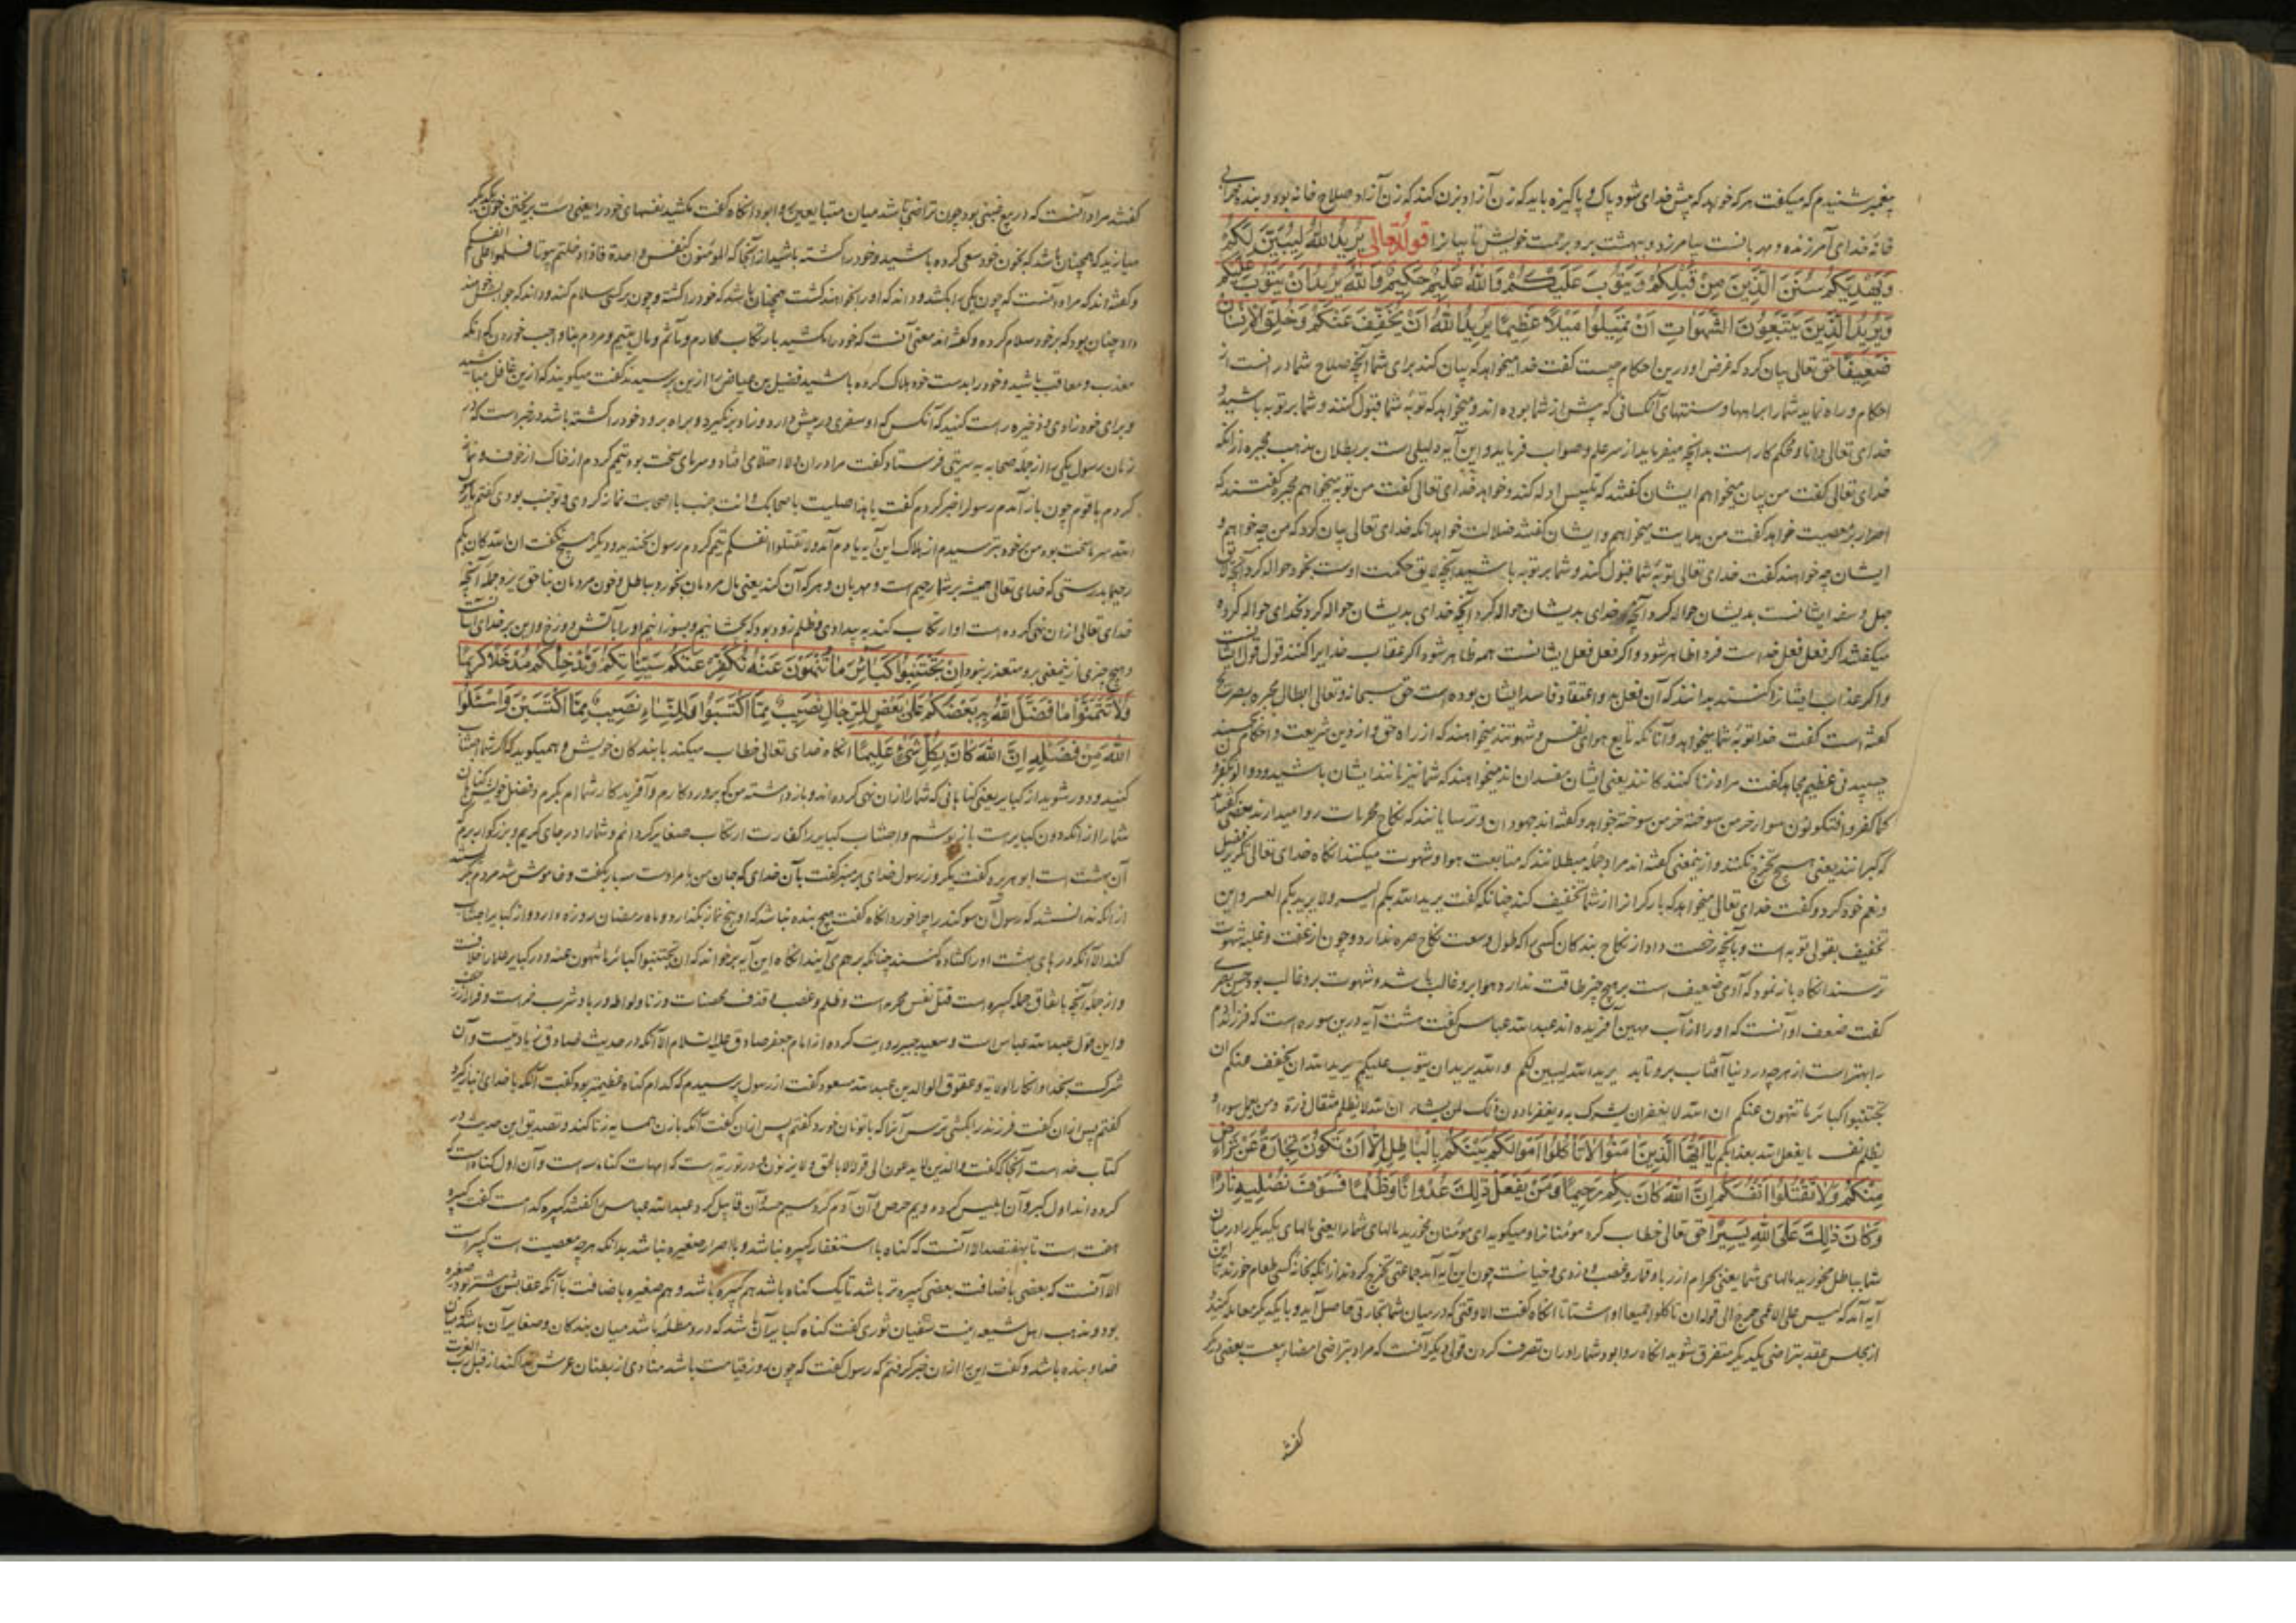 پیغمبر شنیدم که میگفت هر که خواهد که پیش خدای شود پاک و پاکیزه باید که زن آزاد بزن کند که زن آزاد صلاح خانه بود و بنده خرابی
خانه خدای آمرزنده و مهربانست بیامرزد و ببهشت برد برحمت خویش تایبانرا قوله تعالی یُرِیدُ اللهُ لِیُبَیِّنَ لَکُمْ
وَیَهْدِیَکُمْ سُنَنَ الَّذِینَ مِنْ قَبْلِکُمْ وَیَتُوبَ عَلَیْکُمْ وَاللهُ عَلِیمٌ حَکِیمٌ وَاللهُ یُرِیدُ اَنْ یَتُوبَ عَلَیْکُمْ
وَیُرِیدُ الَّذِینَ یَتَّبِعُونَ الشَّهَوَاتِ اَنْ تَمِیلُوا مَیْلًا عَظِیمًا یُرِیدُ اللهُ اَنْ یُخَفِّفَ عَنْکُمْ وَخُلِقَ الْاِنْسَانُ
ضَعِیفًا حق تعالی بیان کرد که غرض او درین احکام چیست گفت خدا میخواهد که بیان کند برای شما آنچه صلاح شما در انست از
احکام و راه نماید شما را براهها و سنتهای آنکسانی که پیش از شما بوده اند و میخواهد که توبه شما قبول کند و شما بر توبه باشید و
خدای تعالی دانا و محکم کار است بدانچه میفرماید از سر علم و صواب فرماید و این آیه دلیلی است بر بطلان مذهب مجبره از آنکه
خدای تعالی گفت من بیان میخواهم ایشان گفتند که تلبیس ادله کند و خواهد خدای تعالی گفت من توبه میخواهم مجبره گفتند که
اصرار بر معصیت خواهد گفت من هدایت میخواهم و ایشان گفتند ضلالت خواهد آنکه خدای تعالی بیان کرد که من چه خواهم و
ایشان چه خواهند گفت خدای تعالی توبه شما قبول کند و شما بر توبه باشید آنچه لایق حکمت اوست بخود حواله کرد و آنچه لایق
جهل و سفه ایشانست بدیشان حواله کرد آنچه خدای بدیشان حواله کرد آنچه خدای بدیشان حواله کرد بخدای حواله کرده
میگفتند اگر فعل فعل خداست فردا ظاهر شود و اگر فعل فعل ایشانست همه ظاهر شود اگر عقاب خدایرا کنند قول قول ایشانست
و اگر عذاب ایشانرا کنند بدانند که آن فعل بد و اعتقاد فاسد ایشان بوده است حق سبحانه و تعالی ابطال مجبره بصریح
گفته است گفت خدا توبه شما میخواهد و آنانکه تابع هوای نفس و شهوتند میخواهند که از راه حق و از دین شریعت و احکام
چسپید فی عظیم مجاهد گفت مراد زنا کنندکانند یعنی ایشان مفسدانند میخواهند که شما نیز مانند ایشان باشید ودوا لو تکفرون
کما کفروا فتکونون سوا خرمن سوخته خرمن سوخته خواهد و گفته اند جهودان و ترسایانند که نکاح محرمات روا میدارند بعضی گفتند
که گبرانند یعنی هیچ تحرج نکنند و ازینمعنی گفته اند مراد جمله مبطلانند که متابعت هوا و شهوت میکنند آنکاه خدای تعالی ذکر فضل
و نعم خود کرد و گفت خدای تعالی میخواهد که بارکرانرا از شما تخفیف کند چنانکه گفت یرید الله بکم الیسر ولا یرید بکم العسر و این
تخفیف بقولی توبه است و بآنچه رخصت داد از نکاح بندکان کسی را که طول و سعت نکاح حره ندارد و چون از عنت و غلبه شهوت
ترسند آنکاه باز نمود که آدمی ضعیف است بر هیچ چیز طاقت ندارد هوا برو غالب باشد و شهوت برو غالب بود حسن بصری
گفت ضعف او آنست که او را از آب مهین آفریده اند عبدالله عباس گفت هشت آیه درین سوره است که فرزند آدم
را بهتر است از هر چه در دنیا آفتاب بر و تابد یرید الله لیبین لکم والله یرید ان یتوب علیکم یرید الله ان یخفف عنکم ان
تجتنبوا کبائر ما تنهون عنکم ان الله لا یغفر ان یشرک به و یغفر ما دون ذلک لمن یشاء ان الله لا یظلم مثقال ذرة ومن یعمل سوءا و
یظلم نفسه ما یفعل الله بعذابکم یَا اَیُّهَا الَّذِینَ اٰمَنُوا لَا تَأْکُلُوا اَمْوَالَکُمْ بَیْنَکُمْ بِالْبَاطِلِ اِلَّا اَنْ تَکُونَ تِجَارَةً عَنْ تَرَاضٍ
مِنْکُمْ وَلَا تَقْتُلُوا اَنْفُسَکُمْ اِنَّ اللهَ کَانَ بِکُمْ رَحِیمًا وَمَنْ یَفْعَلْ ذٰلِکَ عُدْوَانًا وَظُلْمًا فَسَوْفَ نُصْلِیهِ نَارًا
وَکَانَ ذٰلِکَ عَلَی اللهِ یَسِیرًا حق تعالی خطاب کرد مومنانرا و میکوید ای مومنان مخورید مالهای شما را یعنی مالهای یکدیکر را در میان
شما بباطل مخورید مالهای شما یعنی بحرام از ربا و قمار و غصب و دزدی و خیانت چون این آیه آمد جماعتی تحرج کردند از آنکه بخانه کسی طعام خورند تا این
آیه آمد که لیس علی الاعمی حرج الی قوله ان تاکلوا جمیعا او اشتاتا آنکاه گفت الا وقتی که در میان شما تجارتی حاصل آید و با یکدیکر معامله کنید و
از مجلس عقد بتراضی یکدیکر متفرق شوید آنکاه روا بود شما را در آن تصرف کردن قولی دیکر آنست که مراد بتراضی امضاء بیعت بعضی دیکر
گفتند
گفتند مراد آنست که در بیع غبنی نبود چون تراضی باشد میان متبایعین روا بود آنکاه گفت مکشید نفسهای خود را یعنی دست بریختن خون یکدیکر
میازید که همچنان باشد که بخون خود سعی کرده باشید و خود را کشته باشید از آنجا که المومنون کنفس واحدة فاذا دخلتم بیوتا فسلموا علی انفسکم
و گفته اند که مراد آنست که چون یکی را بکشد و داند که او را بخواهند کشت همچنان باشد که خود را کشته و چون بر کسی سلام کند و داند که جوابش خواهند
داد چنان بود که بر خود سلام کرده و گفته اند معنی آنست که خود را مکشید بارتکاب محارم و مآثم و مال یتیم و مردم بناواجب خوردن که آنکه
معذب و معاقب باشید و خود را بدست خود هلاک کرده باشید فضیل بن عیاض را ازین پرسیدند گفت میکویند که ازین غافل مباشید
و برای خود زادی و ذخیره راست کنید که آنکس که او سفری در پیش دارد و زاد برنگیرد و براه رود خود را کشته باشد در خبر است که در
زمان رسول یکی را از جمله صحابه به سریتی فرستاد گفت مرا در آن ولا احتلامی افتاد و سرمای سخت بود تیمم کردم از خاک از خوف و نماز
کردم با قوم چون باز آمدم رسول را خبر کردم گفت یا هذا صلیت باصحابک وانت جنب با اصحابت نماز کردی و تو جنب بودی گفتم یا رسول
الله سرما سخت بود من بر خود بترسیدم از هلاک این آیه یادم آمد ولا تقتلوا انفسکم تیمم کردم رسول بخندید و دیکر هیچ نگفت ان الله کان بکم
رحیما بدرستی که خدای تعالی همیشه بر شما رحیم است و مهربان و هر که آن کند یعنی مال مردمان بخورد بباطل و خون مردمان بناحق ریزد جمله آنچه
خدای تعالی از آن نهی کرده است او ارتکاب کند به بیدادی و ظلم زود بود که بچشانیم و بسوزانیم او را بآتش دوزخ و این بر خدای آسانست
و هیچ چیزی ازینمعنی برو متعذر نبود اِنْ تَجْتَنِبُوا کَبَائِرَ مَا تُنْهَوْنَ عَنْهُ نُکَفِّرْ عَنْکُمْ سَیِّئَاتِکُمْ وَنُدْخِلْکُمْ مُدْخَلًا کَرِیمًا
وَلَا تَتَمَنَّوْا مَا فَضَّلَ اللهُ بِهِ بَعْضَکُمْ عَلٰی بَعْضٍ لِلرِّجَالِ نَصِیبٌ مِمَّا اکْتَسَبُوا وَلِلنِّسَاءِ نَصِیبٌ مِمَّا اکْتَسَبْنَ وَاسْئَلُوا
اللهَ مِنْ فَضْلِهِ اِنَّ اللهَ کَانَ بِکُلِّ شَیْءٍ عَلِیمًا آنکاه خدای تعالی خطاب میکند با بندکان خویش و همیکوید که اگر شما اجتناب
کنید و دور شوید از کبایر یعنی گناهانی که شما را از آن نهی کرده اند و باز داشته من که پروردکارم و آفریدکار شماام بکرم و فضل خویش گناهان
شما را از آنکه دون کبایر است باز پوشم و اجتناب کبایر را کفارت ارتکاب صغایر کردانم و شما را در جای کریم و بزرکوار برم که
آن بهشت است ابوهریره گفت یکروز رسول خدای بر منبر گفت بآن خدای که جان من بامر اوست سه بار بگفت و خاموش شد مردم بگریستند
از آنکه ندانستند که رسول آن سوکند را چرا خورد آنکاه گفت هیچ بنده نباشد که او پنج نماز بگذارد و ماه رمضان روزه دارد و از کبایر اجتناب
کند الا آنکه درهای بهشت او را گشاده کنند چنانکه بر هم می آیند آنکاه این آیه بر خواند که ان تجتنبوا کبائر ما تنهون عنه و در کبایر علما را خلافست
و از جمله آنچه باتفاق جمله کبیره است قتل نفس محرمه است و ظلم و غصب و قذف محصنات و زنا و لواطه و ربا و شرب خمر است و فرار از زحف
و این قول عبدالله عباس است و سعید جبیر روایت کرده از امام جعفر صادق علیه السلام الا آنکه در حدیث صادق زیادتیست و آن
شرکت بخدا و انکار الولایه و عقوق الوالدین عبدالله مسعود گفت از رسول پرسیدم که کدام گناه عظیمتر بود گفت آنکه با خدای انباز گیرد
گفتم پس از آن گفت فرزند را بکشی ترس آنرا که با تو نان خورد گفتم پس از آن گفت آنکه با زن همسایه زنا کند و تصدیق این حدیث در
کتاب خداست آنجا که گفت والذین لا یدعون الی قوله الا بالحق ولا یزنون و در توریة است که امهات گناه سه است و آن اول گناه است که
کرده اند اول کبر و آن ابلیس کرد دویم حرص و آن آدم کرد سیم حسد و آن قابیل کرد عبدالله عباس را گفتند کبیره کدامست گفت کبیره
هفت است تا بهفتصد الا آنست که گناه با استغفار کبیره نباشد و با اصرار صغیره نباشد بدانکه هر چه معصیت است کبیر است
الا آنست که بعضی باضافت بعضی کبیره تر باشد تا یک گناه باشد هم کبیره باشد و هم صغیره باضافت با آنکه عقابش بیشتر بود صغیره
بود و مذهب اهل شیعه اینست سفیان ثوری گفت گناه کبایر آن باشد که در و مظلمه باشد میان بندکان و صغایر آن باشد که میان
خدا و بنده باشد و گفت این را از آن خبر گرفتم که رسول گفت که چون روز قیامت باشد منادی از بطنان عرش ندا کند از قبل رب العزت